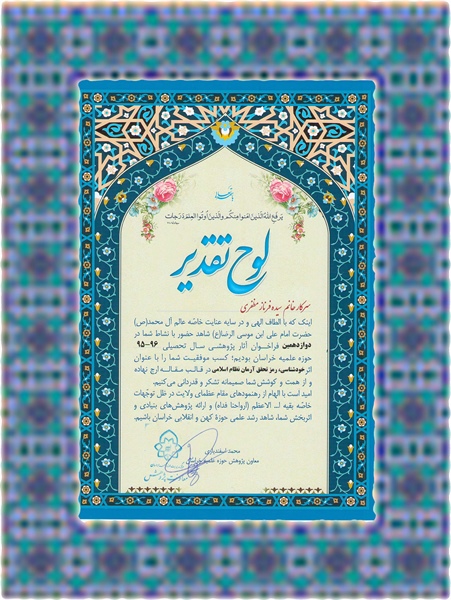 یَرفَعِ اللهُ الَّذینَ امَنوا مِنکُم وَالَّذینَ اُوتُوا العِلمَ دَرَجات
لوح تقدیر
سرکار خانم سیده فرناز مظفری
اینک که با الطاف الهی و در سایه عنایت خاصّه عالم آل محمد(ص)
حضرت امام علی ابن موسی الرضا(ع) شاهد حضور با نشاط شما در
دوازدهمین فراخوان آثار پژوهشی سال تحصیلی ۹۶-۹۵
حوزه علمیه خراسان بودیم؛ کسب موفقیت شما را با عنوان
اثر خودشناسی، رمز تحقق آرمان نظام اسلامی در قالب مقاله ارج نهاده
و از همت و کوشش شما صمیمانه تشکر و قدردانی می‌کنیم.
امید است با الهام از رهنمودهای مقام عظمای ولایت در ظل توجّهات
خاصّه بقیه ا... الاعظم (ارواحنا فداه) و ارائه پژوهش‌های بنیادی و
اثربخش شما، شاهد رشد علمی حوزهٔ کهن و انقلابی خراسان باشیم.
معاون پژوهش حوزه علمیه